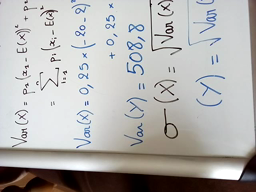 Var(X) = p₁(x₁ - E(X))² + p₂
= ∑ pᵢ(xᵢ - E(X))
i=1
Var(X) = 0,25 × (-20-2)²
+ 0,25 ×
Var(Y) = 508,8
σ(X) = √Var(X)
(Y) = √Var(